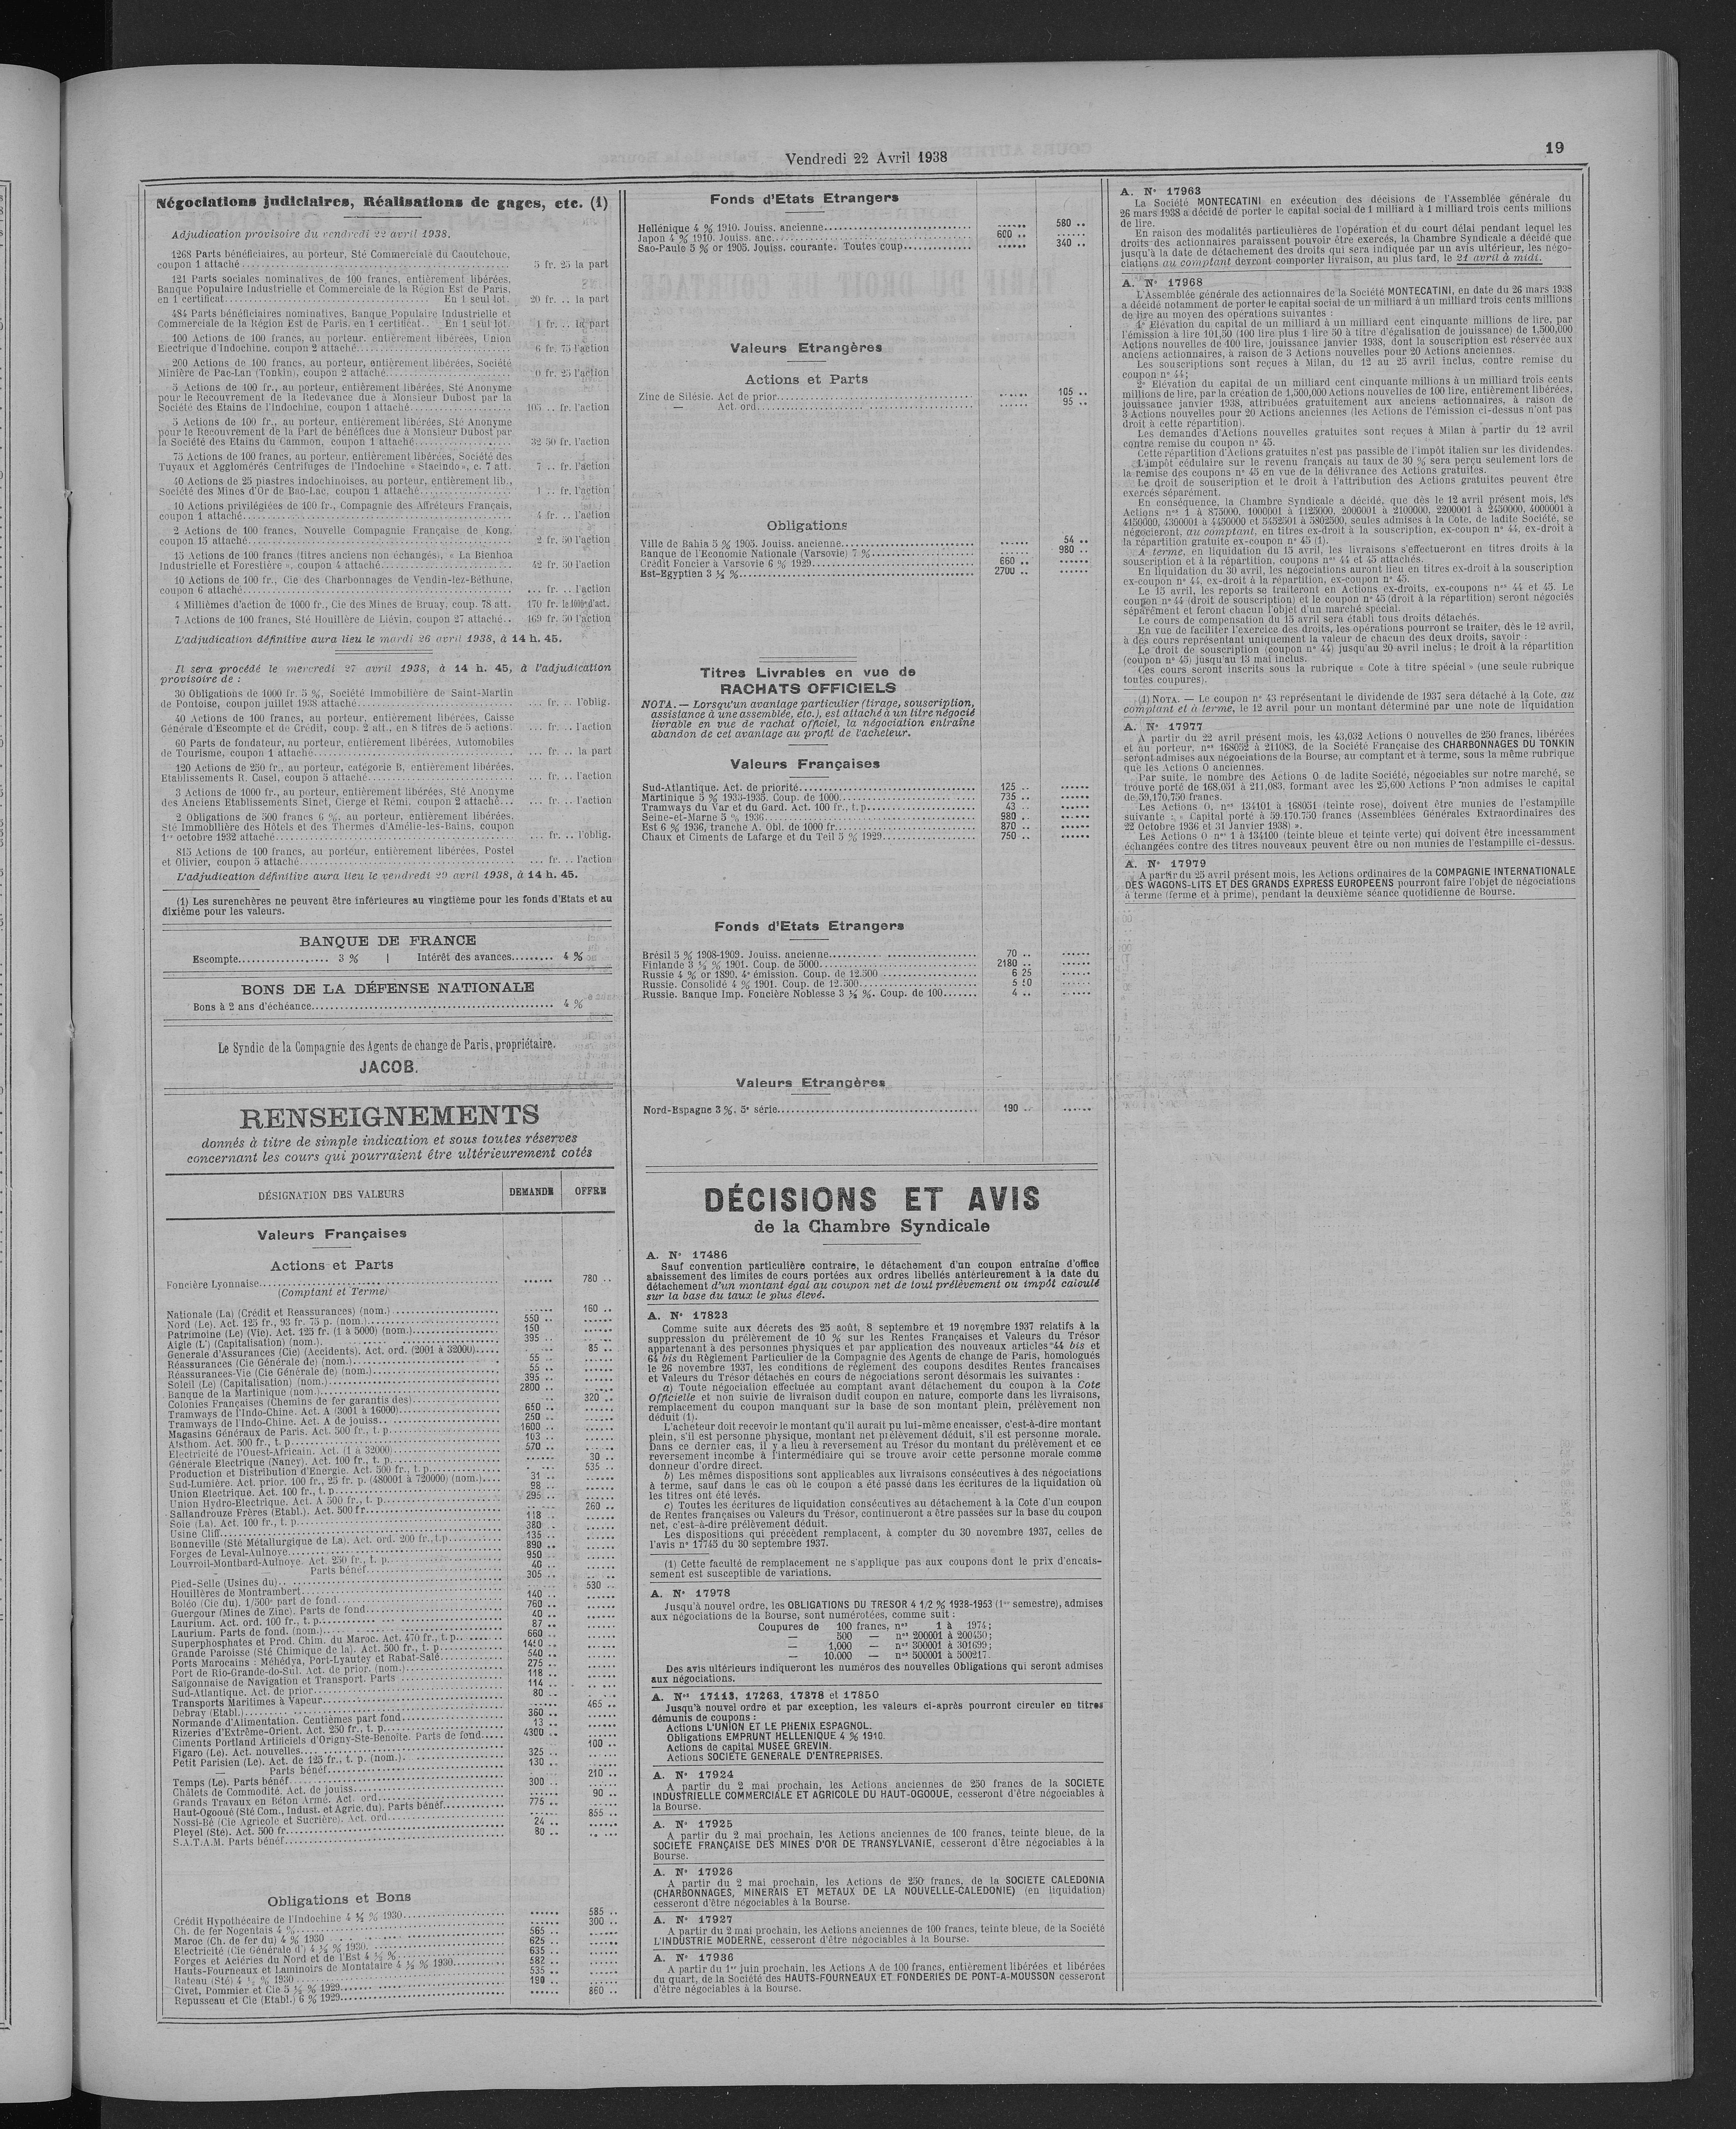 Vendredi 22 Avril 1938
19
Négociations judiciaires, Réalisations de gages, etc. (1)
Adjudication provisoire du vendredi 22 avril 1938.
1268 Parts bénéficiaires, au porteur, Sté Commerciale du Caoutchouc,
coupon 1 attaché 5 fr. 25 la part
121 Parts sociales nominatives de 100 francs, entièrement libérées,
Banque Populaire Industrielle et Commerciale de la Région Est de Paris,
en 1 certificat En 1 seul lot. 20 fr. .. la part
484 Parts bénéficiaires nominatives, Banque Populaire Industrielle et
Commerciale de la Région Est de Paris, en 1 certificat.. En 1 seul lot. 1 fr. .. la part
100 Actions de 100 francs, au porteur, entièrement libérées, Union
Electrique d'Indochine, coupon 2 attaché 6 fr. 75 l'action
200 Actions de 100 francs, au porteur, entièrement libérées, Société
Minière de Pac-Lan (Tonkin), coupon 2 attaché 0 fr. 25 l'action
5 Actions de 100 fr., au porteur, entièrement libérées, Sté Anonyme
pour le Recouvrement de la Redevance due à Monsieur Dubost par la
Société des Etains de l'Indochine, coupon 1 attaché 105 .. fr. l'action
5 Actions de 100 fr., au porteur, entièrement libérées, Sté Anonyme
pour le Recouvrement de la Part de bénéfices due à Monsieur Dubost par
la Société des Etains du Cammon, coupon 1 attaché 32 50 fr. l'action
75 Actions de 100 francs, au porteur, entièrement libérées, Société des
Tuyaux et Agglomérés Centrifuges de l'Indochine « Stacindo », c. 7 att. 7 .. fr. l'action
40 Actions de 25 piastres indochinoises, au porteur, entièrement lib.,
Société des Mines d'Or de Bao-Lac, coupon 1 attaché 1 .. fr. l'action
10 Actions privilégiées de 100 fr., Compagnie des Affréteurs Français,
coupon 1 attaché 4 fr. .. l'action
2 Actions de 100 francs, Nouvelle Compagnie Française de Kong,
coupon 15 attaché 2 fr. 50 l'action
15 Actions de 100 francs (titres anciens non échangés), « La Bienhoa
Industrielle et Forestière », coupon 4 attaché 42 fr. 50 l'action
10 Actions de 100 fr., Cie des Charbonnages de Vendin-lez-Béthune,
coupon 6 attaché ... fr. .. l'action
4 Millièmes d'action de 1000 fr., Cie des Mines de Bruay, coup. 78 att. 170 fr. le 1000e d'act.
7 Actions de 100 francs, Sté Houillère de Liévin, coupon 27 attaché.. 169 fr. 50 l'action
L'adjudication définitive aura lieu le mardi 26 avril 1938, à 14 h. 45.
Il sera procédé le mercredi 27 avril 1938, à 14 h. 45, à l'adjudication
provisoire de :
30 Obligations de 1000 fr. 5 %, Société Immobilière de Saint-Martin
de Pontoise, coupon juillet 1938 attaché ... fr. .. l'oblig.
40 Actions de 100 francs, au porteur, entièrement libérées, Caisse
Générale d'Escompte et de Crédit, coup. 2 att., en 8 titres de 5 actions. ... fr. .. l'action
60 Parts de fondateur, au porteur, entièrement libérées, Automobiles
de Tourisme, coupon 1 attaché ... fr. .. la part
120 Actions de 250 fr., au porteur, catégorie B, entièrement libérées,
Etablissements R. Casel, coupon 5 attaché ... fr. .. l'action
3 Actions de 1000 fr., au porteur, entièrement libérées, Sté Anonyme
des Anciens Etablissements Sinet, Cierge et Rémi, coupon 2 attaché ... fr. .. l'action
2 Obligations de 500 francs 6 %, au porteur, entièrement libérées,
Sté Immobilière des Hôtels et des Thermes d'Amélie-les-Bains, coupon
1er octobre 1932 attaché ... fr. .. l'oblig.
815 Actions de 100 francs, au porteur, entièrement libérées, Postel
et Olivier, coupon 5 attaché ... fr. .. l'action
L'adjudication définitive aura lieu le vendredi 29 avril 1938, à 14 h. 45.
(1) Les surenchères ne peuvent être inférieures au vingtième pour les fonds d'Etats et au
dixième pour les valeurs.
BANQUE DE FRANCE
Escompte 3 % | Intérêt des avances 4 %
BONS DE LA DÉFENSE NATIONALE
Bons à 2 ans d'échéance 4 %
Le Syndic de la Compagnie des Agents de change de Paris, propriétaire.
JACOB.
RENSEIGNEMENTS
donnés à titre de simple indication et sous toutes réserves
concernant les cours qui pourraient être ultérieurement cotés
DÉSIGNATION DES VALEURS DEMANDE OFFRE
Valeurs Françaises
Actions et Parts
Foncière Lyonnaise ...... 780 ..
(Comptant et Terme)
Nationale (La) (Crédit et Reassurances) (nom.) ...... 160 ..
Nord (Le). Act. 125 fr., 93 fr. 75 p. (nom.) 550 ..
Patrimoine (Le) (Vie). Act. 125 fr. (1 à 5000) (nom.) 150
Aigle (L') (Capitalisation) (nom.) 395 ..
Generale d'Assurances (Cie) (Accidents). Act. ord. (2001 à 32000) 85 ..
Réassurances (Cie Générale de) (nom.) 55 ..
Réassurances-Vie (Cie Générale de) (nom.) 55 ..
Soleil (Le) (Capitalisation) (nom.) 395 ..
Banque de la Martinique (nom.) 2800 ..
Colonies Françaises (Chemins de fer garantis des) 320 ..
Tramways de l'Indo-Chine. Act. A (3001 à 16000) 650 ..
Tramways de l'Indo-Chine. Act. A de jouiss. 250 ..
Magasins Généraux de Paris. Act. 500 fr., t. p. 1600 ..
Alsthom. Act. 500 fr., t. p. 103 ..
Electricité de l'Ouest-Africain. Act. (1 à 32000) 570 ..
Générale Electrique (Nancy). Act. 100 fr., t. p. 30 ..
Production et Distribution d'Energie. Act. 500 fr., t. p. 535 ..
Sud-Lumière. Act. prior. 100 fr., 25 fr. p. (480001 à 720000) (nom.) 31 ..
Union Electrique. Act. 100 fr., t. p. 98 ..
Union Hydro-Electrique. Act. A 500 fr., t. p. 295 ..
Sallandrouze Frères (Etabl.). Act. 500 fr. 260 ..
Soie (La). Act. 100 fr., t. p. 118 ..
Usine Cliff 380 ..
Bonneville (Sté Métallurgique de La). Act. ord. 200 fr., t.p. 135 ..
Forges de Leval-Aulnoye 890 ..
Louvroil-Montbard-Aulnoye. Act. 250 fr., t. p. 950 ..
— Parts bénéf. 40 ..
Pied-Selle (Usines du) 305 ..
Houillères de Montrambert 530 ..
Boléo (Cie du). 1/500e part de fond. 140 ..
Guergour (Mines de Zinc). Parts de fond. 760 ..
Laurium. Act. ord. 100 fr., t. p. 40 ..
Laurium. Parts de fond. (nom.) 87 ..
Superphosphates et Prod. Chim. du Maroc. Act. 470 fr., t. p. 660 ..
Grande Paroisse (Sté Chimique de la). Act. 500 fr., t. p. 1450 ..
Ports Marocains : Méhédya, Port-Lyautey et Rabat-Salé 540 ..
Port de Rio-Grande-do-Sul. Act. de prior. (nom.) 275 ..
Saïgonnaise de Navigation et Transport. Parts 118 ..
Sud-Atlantique. Act. de prior. 114 ..
Transports Maritimes à Vapeur 80 ..
Debray (Etabl.) 465 ..
Normande d'Alimentation. Centièmes part fond. 360 ..
Rizeries d'Extrême-Orient. Act. 250 fr., t. p. 13 ..
Ciments Portland Artificiels d'Origny-Ste-Benoîte. Parts de fond. 4300 ..
Figaro (Le). Act. nouvelles 100 ..
Petit Parisien (Le). Act. de 125 fr., t. p. (nom.) 325 ..
— Parts bénéf. 130 ..
Temps (Le). Parts bénéf. 210 ..
Châlets de Commodité. Act. de jouiss. 300 ..
Grands Travaux en Béton Armé. Act. ord. 90 ..
Haut-Ogooué (Sté Com., Indust. et Agric. du). Parts bénéf. 775 ..
Nossi-Bé (Cie Agricole et Sucrière). Act. ord. 855 ..
Pleyel (Sté). Act. 500 fr. 24 ..
S.A.T.A.M. Parts bénéf. 80 ..
Obligations et Bons
Crédit Hypothécaire de l'Indochine 4 ½ % 1930 585 ..
Ch. de fer Nogentais 4 % 300 ..
Maroc (Ch. de fer du) 4 % 1930 565 ..
Electricité (Cie Générale d') 4 ½ % 1930 625 ..
Forges et Aciéries du Nord et de l'Est 4 ½ % 635 ..
Hauts-Fourneaux et Laminoirs de Montataire 4 ½ % 1930 582 ..
Rateau (Sté) 4 ½ % 1930 535 ..
Civet, Pommier et Cie 5 ½ % 1929 190 ..
Repusseau et Cie (Etabl.) 6 % 1929 860 ..
Fonds d'Etats Etrangers
Hellénique 4 % 1910. Jouiss. ancienne ...... 580 ..
Japon 4 % 1910. Jouiss. anc. 600 .. ......
Sao-Paulo 5 % or 1905. Jouiss. courante. Toutes coup. ...... 340 ..
Valeurs Etrangères
Actions et Parts
Zinc de Silésie. Act de prior. ...... 105 ..
— Act. ord. ...... 95 ..
Obligations
Ville de Bahia 5 % 1905. Jouiss. ancienne ...... 54 ..
Banque de l'Economie Nationale (Varsovie) 7 % ...... 980 ..
Crédit Foncier à Varsovie 6 % 1929 660 .. ......
Est-Egyptien 3 ½ % 2700 .. ......
Titres Livrables en vue de
RACHATS OFFICIELS
NOTA. — Lorsqu'un avantage particulier (tirage, souscription,
assistance à une assemblée, etc.), est attaché à un titre négocié
livrable en vue de rachat officiel, la négociation entraîne
abandon de cet avantage au profit de l'acheteur.
Valeurs Françaises
Sud-Atlantique. Act. de priorité 125 .. ......
Martinique 5 % 1933-1935. Coup. de 1000 735 .. ......
Tramways du Var et du Gard. Act. 100 fr., t. p. 43 .. ......
Seine-et-Marne 5 % 1936 980 .. ......
Est 6 % 1936, tranche A. Obl. de 1000 fr. 870 .. ......
Chaux et Ciments de Lafarge et du Teil 5 % 1929 750 .. ......
Fonds d'Etats Etrangers
Brésil 5 % 1908-1909. Jouiss. ancienne 70 .. ......
Finlande 3 ½ % 1901. Coup. de 5000 2180 .. ......
Russie 4 % or 1890, 4e émission. Coup. de 12.500 6 25 ......
Russie. Consolidé 4 % 1901. Coup. de 12.500 5 50 ......
Russie. Banque Imp. Foncière Noblesse 3 ½ %. Coup. de 100 4 .. ......
Valeurs Etrangères
Nord-Espagne 3 %, 5e série 190 .. ......
DÉCISIONS ET AVIS
de la Chambre Syndicale
A. N° 17486
Sauf convention particulière contraire, le détachement d'un coupon entraîne d'office
abaissement des limites de cours portées aux ordres libellés antérieurement à la date du
détachement d'un montant égal au coupon net de tout prélèvement ou impôt calculé
sur la base du taux le plus élevé.
A. N° 17823
Comme suite aux décrets des 25 août, 8 septembre et 19 novembre 1937 relatifs à la
suppression du prélèvement de 10 % sur les Rentes Françaises et Valeurs du Trésor
appartenant à des personnes physiques et par application des nouveaux articles 44 bis et
64 bis du Règlement Particulier de la Compagnie des Agents de change de Paris, homologués
le 26 novembre 1937, les conditions de règlement des coupons desdites Rentes françaises
et Valeurs du Trésor détachés en cours de négociations seront désormais les suivantes :
a) Toute négociation effectuée au comptant avant détachement du coupon à la Cote
Officielle et non suivie de livraison dudit coupon en nature, comporte dans les livraisons,
remplacement du coupon manquant sur la base de son montant plein, prélèvement non
déduit (1).
L'acheteur doit recevoir le montant qu'il aurait pu lui-même encaisser, c'est-à-dire montant
plein, s'il est personne physique, montant net prélèvement déduit, s'il est personne morale.
Dans ce dernier cas, il y a lieu à reversement au Trésor du montant du prélèvement et ce
reversement incombe à l'intermédiaire qui se trouve avoir cette personne morale comme
donneur d'ordre direct.
b) Les mêmes dispositions sont applicables aux livraisons consécutives à des négociations
à terme, sauf dans le cas où le coupon a été passé dans les écritures de la liquidation où
les titres ont été levés.
c) Toutes les écritures de liquidation consécutives au détachement à la Cote d'un coupon
de Rentes françaises ou Valeurs du Trésor, continueront a être passées sur la base du coupon
net, c'est-à-dire prélèvement déduit.
Les dispositions qui précèdent remplacent, à compter du 30 novembre 1937, celles de
l'avis n° 17745 du 30 septembre 1937.
(1) Cette faculté de remplacement ne s'applique pas aux coupons dont le prix d'encais-
sement est susceptible de variations.
A. N° 17978
Jusqu'à nouvel ordre, les OBLIGATIONS DU TRESOR 4 1/2 % 1938-1953 (1er semestre), admises
aux négociations de la Bourse, sont numérotées, comme suit :
Coupures de 100 francs, nos 1 à 1974;
— 500 — nos 200001 à 200450;
— 1,000 — nos 300001 à 301699;
— 10.000 — nos 500001 à 500217.
Des avis ultérieurs indiqueront les numéros des nouvelles Obligations qui seront admises
aux négociations.
A. Nos 17113, 17263, 17378 et 17850
Jusqu'à nouvel ordre et par exception, les valeurs ci-après pourront circuler en titres
démunis de coupons :
Actions L'UNION ET LE PHENIX ESPAGNOL.
Obligations EMPRUNT HELLENIQUE 4 % 1910.
Actions de capital MUSEE GREVIN.
Actions SOCIETE GENERALE D'ENTREPRISES.
A. N° 17924
A partir du 2 mai prochain, les Actions anciennes de 250 francs de la SOCIETE
INDUSTRIELLE COMMERCIALE ET AGRICOLE DU HAUT-OGOOUE, cesseront d'être négociables à
la Bourse.
A. N° 17925
A partir du 2 mai prochain, les Actions anciennes de 100 francs, teinte bleue, de la
SOCIETE FRANÇAISE DES MINES D'OR DE TRANSYLVANIE, cesseront d'être négociables à la
Bourse.
A. N° 17926
A partir du 2 mai prochain, les Actions de 250 francs, de la SOCIETE CALEDONIA
(CHARBONNAGES, MINERAIS ET METAUX DE LA NOUVELLE-CALEDONIE) (en liquidation)
cesseront d'être négociables à la Bourse.
A. N° 17927
A partir du 2 mai prochain, les Actions anciennes de 100 francs, teinte bleue, de la Société
L'INDUSTRIE MODERNE, cesseront d'être négociables à la Bourse.
A. N° 17936
A partir du 1er juin prochain, les Actions A de 100 francs, entièrement libérées et libérées
du quart, de la Société des HAUTS-FOURNEAUX ET FONDERIES DE PONT-A-MOUSSON cesseront
d'être négociables à la Bourse.
A. N° 17963
La Société MONTECATINI en exécution des décisions de l'Assemblée générale du
26 mars 1938 a décidé de porter le capital social de 1 milliard à 1 milliard trois cents millions
de lire.
En raison des modalités particulières de l'opération et du court délai pendant lequel les
droits des actionnaires paraissent pouvoir être exercés, la Chambre Syndicale a décidé que
jusqu'à la date de détachement des droits qui sera indiquée par un avis ultérieur, les négo-
ciations au comptant devront comporter livraison, au plus tard, le 21 avril à midi.
A. N° 17968
L'Assemblée générale des actionnaires de la Société MONTECATINI, en date du 26 mars 1938
a décidé notamment de porter le capital social de un milliard à un milliard trois cents millions
de lire au moyen des opérations suivantes :
1° Elévation du capital de un milliard à un milliard cent cinquante millions de lire, par
l'émission à lire 101,50 (100 lire plus 1 lire 50 à titre d'égalisation de jouissance) de 1,500,000
Actions nouvelles de 100 lire, jouissance janvier 1938, dont la souscription est réservée aux
anciens actionnaires, à raison de 3 Actions nouvelles pour 20 Actions anciennes.
Les souscriptions sont reçues à Milan, du 12 au 25 avril inclus, contre remise du
coupon n° 44;
2° Elévation du capital de un milliard cent cinquante millions à un milliard trois cents
millions de lire, par la création de 1,500,000 Actions nouvelles de 100 lire, entièrement libérées,
jouissance janvier 1938, attribuées gratuitement aux anciens actionnaires, à raison de
3 Actions nouvelles pour 20 Actions anciennes (les Actions de l'émission ci-dessus n'ont pas
droit à cette répartition).
Les demandes d'Actions nouvelles gratuites sont reçues à Milan à partir du 12 avril
contre remise du coupon n° 45.
Cette répartition d'Actions gratuites n'est pas passible de l'impôt italien sur les dividendes.
L'impôt cédulaire sur le revenu français au taux de 30 % sera perçu seulement lors de
la remise des coupons n° 45 en vue de la délivrance des Actions gratuites.
Le droit de souscription et le droit à l'attribution des Actions gratuites peuvent être
exercés séparément.
En conséquence, la Chambre Syndicale a décidé, que dès le 12 avril présent mois, les
Actions nos 1 à 875000, 1000001 à 1125000, 2000001 à 2100000, 2200001 à 2450000, 4000001 à
4150000, 4300001 à 4450000 et 5452501 à 5802500, seules admises à la Cote, de ladite Société, se
négocieront, au comptant, en titres ex-droit à la souscription, ex-coupon n° 44, ex-droit à
la répartition gratuite ex-coupon n° 45 (1).
A terme, en liquidation du 15 avril, les livraisons s'effectueront en titres droits à la
souscription et à la répartition, coupons nos 44 et 45 attachés.
En liquidation du 30 avril, les négociations auront lieu en titres ex-droit à la souscription
ex-coupon n° 44, ex-droit à la répartition, ex-coupon n° 45.
Le 15 avril, les reports se traiteront en Actions ex-droits, ex-coupons nos 44 et 45. Le
coupon n° 44 (droit de souscription) et le coupon n° 45 (droit à la répartition) seront négociés
séparément et feront chacun l'objet d'un marché spécial.
Le cours de compensation du 15 avril sera établi tous droits détachés.
En vue de faciliter l'exercice des droits, les opérations pourront se traiter, dès le 12 avril,
à des cours représentant uniquement la valeur de chacun des deux droits, savoir :
Le droit de souscription (coupon n° 44) jusqu'au 20 avril inclus; le droit à la répartition
(coupon n° 45) jusqu'au 13 mai inclus.
Ces cours seront inscrits sous la rubrique « Cote à titre spécial » (une seule rubrique
toutes coupures).
(1) NOTA. — Le coupon n° 43 représentant le dividende de 1937 sera détaché à la Cote, au
comptant et à terme, le 12 avril pour un montant déterminé par une note de liquidation
A. N° 17977
A partir du 22 avril présent mois, les 43,032 Actions O nouvelles de 250 francs, libérées
et au porteur, nos 168052 à 211083, de la Société Française des CHARBONNAGES DU TONKIN
seront admises aux négociations de la Bourse, au comptant et à terme, sous la même rubrique
que les Actions O anciennes.
Par suite, le nombre des Actions O de ladite Société, négociables sur notre marché, se
trouve porté de 168,051 à 211,083, formant avec les 25,600 Actions P non admises le capital
de 59,170,750 francs.
Les Actions O, nos 134101 à 168051 (teinte rose), doivent être munies de l'estampille
suivante : « Capital porté à 59.170.750 francs (Assemblées Générales Extraordinaires des
22 Octobre 1936 et 31 Janvier 1938) ».
Les Actions O nos 1 à 134100 (teinte bleue et teinte verte) qui doivent être incessamment
échangées contre des titres nouveaux peuvent être ou non munies de l'estampille ci-dessus.
A. N° 17979
A partir du 25 avril présent mois, les Actions ordinaires de la COMPAGNIE INTERNATIONALE
DES WAGONS-LITS ET DES GRANDS EXPRESS EUROPEENS pourront faire l'objet de négociations
à terme (ferme et à prime), pendant la deuxième séance quotidienne de Bourse.